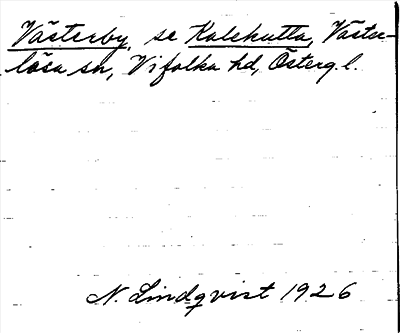 Västerby, se Kalekutta, Väster-
lösa sn, Vifolka hd, Österg. l.
N. Lindqvist 1926